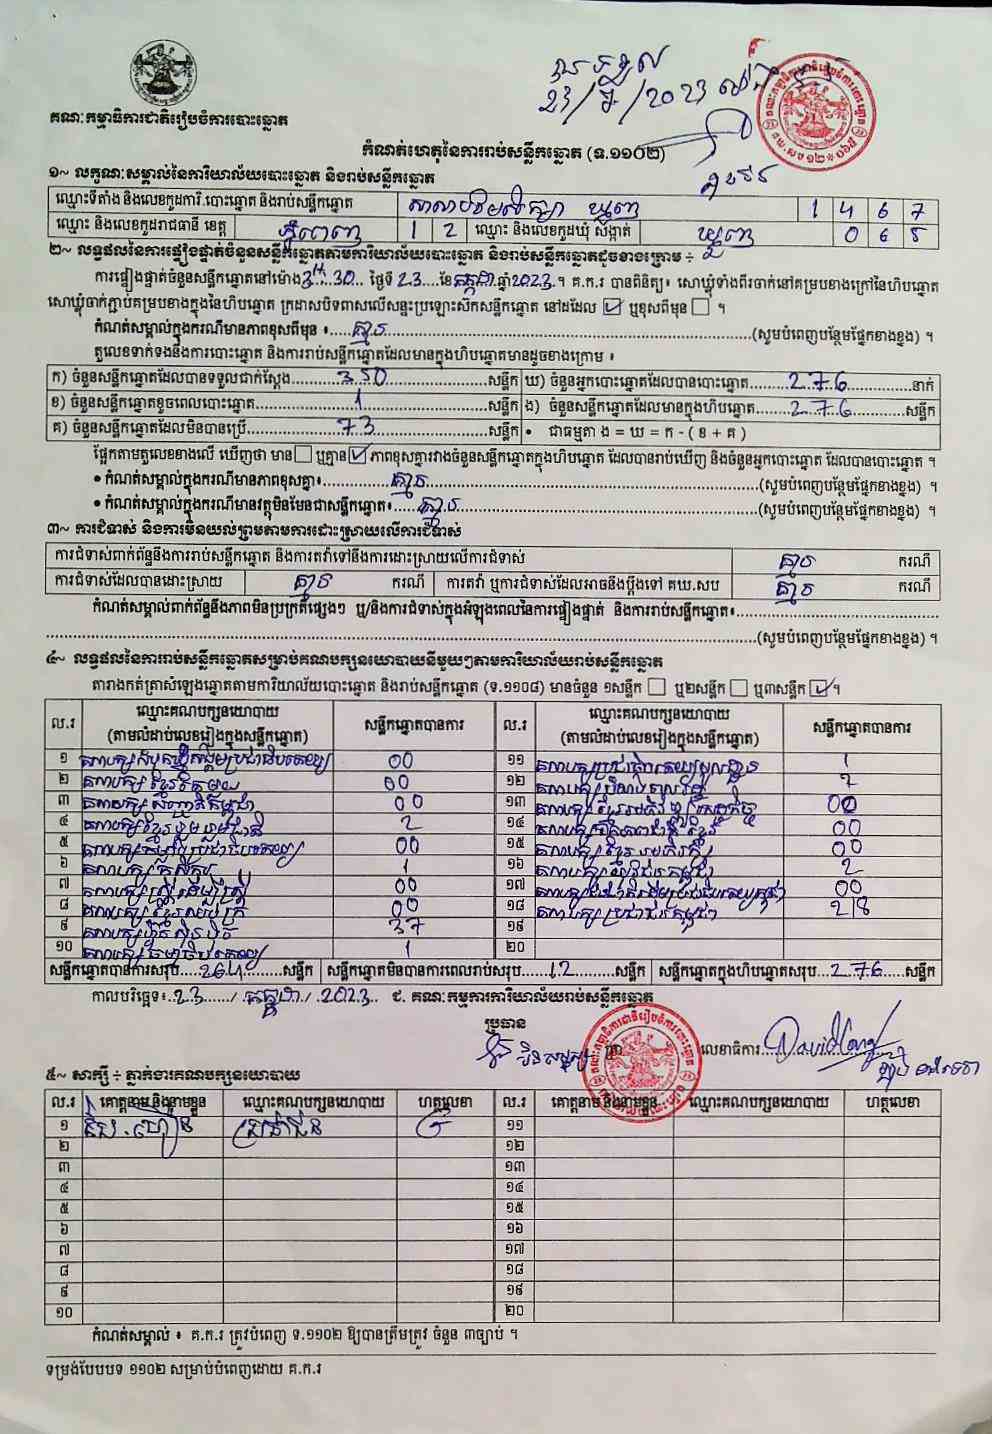 បានទទួល
23/7/2023
គណៈកម្មាធិការជាតិរៀបចំការបោះឆ្នោត
កំណត់ហេតុនៃការរាប់សន្លឹកឆ្នោត (ទ.១១០២)
១~ លក្ខណៈសម្គាល់នៃការិយាល័យបោះឆ្នោត និងរាប់សន្លឹកឆ្នោត
ឈ្មោះទីតាំង និងលេខកូដការិ.បោះឆ្នោត និងរាប់សន្លឹកឆ្នោត 1 4 6 7
ឈ្មោះ និងលេខកូដរាជធានី ខេត្ត ភ្នំពេញ 1 2 ឈ្មោះ និងលេខកូដឃុំ សង្កាត់ 0 6 5
២~ លទ្ធផលនៃការផ្ទៀងផ្ទាត់ចំនួនសន្លឹកឆ្នោតតាមការិយាល័យបោះឆ្នោត និងរាប់សន្លឹកឆ្នោតដូចខាងក្រោម ÷
ការផ្ទៀងផ្ទាត់ចំនួនសន្លឹកឆ្នោតនៅម៉ោង 3H 30 ថ្ងៃទី 23 ខែ កក្កដា ឆ្នាំ 2023 ។ គ.ក.រ បានពិនិត្យ៖ សោឃ្មុំទាំងពីរចាក់នៅគម្របខាងក្រៅនៃហិបឆ្នោត
សោឃ្មុំចាក់ភ្ជាប់គម្របខាងក្នុងនៃហិបឆ្នោត ក្រដាសបិទពាសលើសន្ទះប្រឡោះស៊កសន្លឹកឆ្នោត នៅដដែល ☑ ឬខុសពីមុន ☐ ។
កំណត់សម្គាល់ក្នុងករណីមានភាពខុសពីមុន ៖ គ្មាន (សូមបំពេញបន្ថែមផ្នែកខាងខ្នង) ។
តួលេខទាក់ទងនឹងការបោះឆ្នោត និងការរាប់សន្លឹកឆ្នោតដែលមានក្នុងហិបឆ្នោតមានដូចខាងក្រោម ៖
ក) ចំនួនសន្លឹកឆ្នោតដែលបានទទួលជាក់ស្តែង 350 សន្លឹក ឃ) ចំនួនអ្នកបោះឆ្នោតដែលបានបោះឆ្នោត 276 នាក់
ខ) ចំនួនសន្លឹកឆ្នោតខូចពេលបោះឆ្នោត 1 សន្លឹក ង) ចំនួនសន្លឹកឆ្នោតដែលមានក្នុងហិបឆ្នោត 276 សន្លឹក
គ) ចំនួនសន្លឹកឆ្នោតដែលមិនបានប្រើ 73 សន្លឹក • ជាធម្មតា ង = ឃ = ក - ( ខ + គ )
ផ្អែកតាមតួលេខខាងលើ ឃើញថា មាន ☐ ឬគ្មាន ☑ ភាពខុសគ្នារវាងចំនួនសន្លឹកឆ្នោតក្នុងហិបឆ្នោត ដែលបានរាប់ឃើញ និងចំនួនអ្នកបោះឆ្នោត ដែលបានបោះឆ្នោត ។
• កំណត់សម្គាល់ក្នុងករណីមានភាពខុសគ្នា៖ គ្មាន (សូមបំពេញបន្ថែមផ្នែកខាងខ្នង) ។
• កំណត់សម្គាល់ក្នុងករណីមានវត្ថុមិនមែនជាសន្លឹកឆ្នោត៖ គ្មាន (សូមបំពេញបន្ថែមផ្នែកខាងខ្នង) ។
៣~ ការជំទាស់ និងការមិនយល់ព្រមតាមការដោះស្រាយលើការជំទាស់
ការជំទាស់ពាក់ព័ន្ធនឹងការរាប់សន្លឹកឆ្នោត និងការតវ៉ាទៅនឹងការដោះស្រាយលើការជំទាស់ គ្មាន ករណី
ការជំទាស់ដែលបានដោះស្រាយ គ្មាន ករណី ការតវ៉ា ឬការជំទាស់ដែលអាចនឹងប្តឹងទៅ គឃ.សប គ្មាន ករណី
កំណត់សម្គាល់ពាក់ព័ន្ធនឹងភាពមិនប្រក្រតីផ្សេងៗ ឬ/និងការជំទាស់ក្នុងអំឡុងពេលនៃការផ្ទៀងផ្ទាត់ និងការរាប់សន្លឹកឆ្នោត៖
(សូមបំពេញបន្ថែមផ្នែកខាងខ្នង) ។
៤~ លទ្ធផលនៃការរាប់សន្លឹកឆ្នោតសម្រាប់គណបក្សនយោបាយនីមួយៗតាមការិយាល័យរាប់សន្លឹកឆ្នោត
តារាងកត់ត្រាសំឡេងឆ្នោតតាមការិយាល័យបោះឆ្នោត និងរាប់សន្លឹកឆ្នោត (ទ.១១០៨) មានចំនួន ១សន្លឹក ☐ ឬ២សន្លឹក ☐ ឬ៣សន្លឹក ☑ ។
ល.រ ឈ្មោះគណបក្សនយោបាយ (តាមលំដាប់លេខរៀងក្នុងសន្លឹកឆ្នោត) សន្លឹកឆ្នោតបានការ ល.រ ឈ្មោះគណបក្សនយោបាយ (តាមលំដាប់លេខរៀងក្នុងសន្លឹកឆ្នោត) សន្លឹកឆ្នោតបានការ
១ 00 ១១ 1
២ 00 ១២ 7
៣ 00 ១៣ 00
៤ 2 ១៤ 00
៥ 00 ១៥ 00
៦ 1 ១៦ 2
៧ 00 ១៧ 00
៨ 00 ១៨ គណបក្សប្រជាជនកម្ពុជា 218
៩ គណបក្សហ្វ៊ុនស៊ិនប៉ិច ១៩
១០ 1 ២០
សន្លឹកឆ្នោតបានការសរុប 264 សន្លឹក សន្លឹកឆ្នោតមិនបានការពេលរាប់សរុប 12 សន្លឹក សន្លឹកឆ្នោតក្នុងហិបឆ្នោតសរុប 276 សន្លឹក
កាលបរិច្ឆេទ៖ 23 / កក្កដា / 2023 ជ. គណៈកម្មការការិយាល័យរាប់សន្លឹកឆ្នោត
ប្រធាន លេខាធិការ
៥~ សាក្សី ÷ ភ្នាក់ងារគណបក្សនយោបាយ
ល.រ គោត្តនាម និងនាមខ្លួន ឈ្មោះគណបក្សនយោបាយ ហត្ថលេខា ល.រ គោត្តនាម និងនាមខ្លួន ឈ្មោះគណបក្សនយោបាយ ហត្ថលេខា
១ ប្រជាជន ១១
២ ១២
៣ ១៣
៤ ១៤
៥ ១៥
៦ ១៦
៧ ១៧
៨ ១៨
៩ ១៩
១០ ២០
កំណត់សម្គាល់ ៖ គ.ក.រ ត្រូវបំពេញ ទ.១១០២ ឱ្យបានត្រឹមត្រូវ ចំនួន ៣ច្បាប់ ។
ទម្រង់បែបបទ ១១០២ សម្រាប់បំពេញដោយ គ.ក.រ